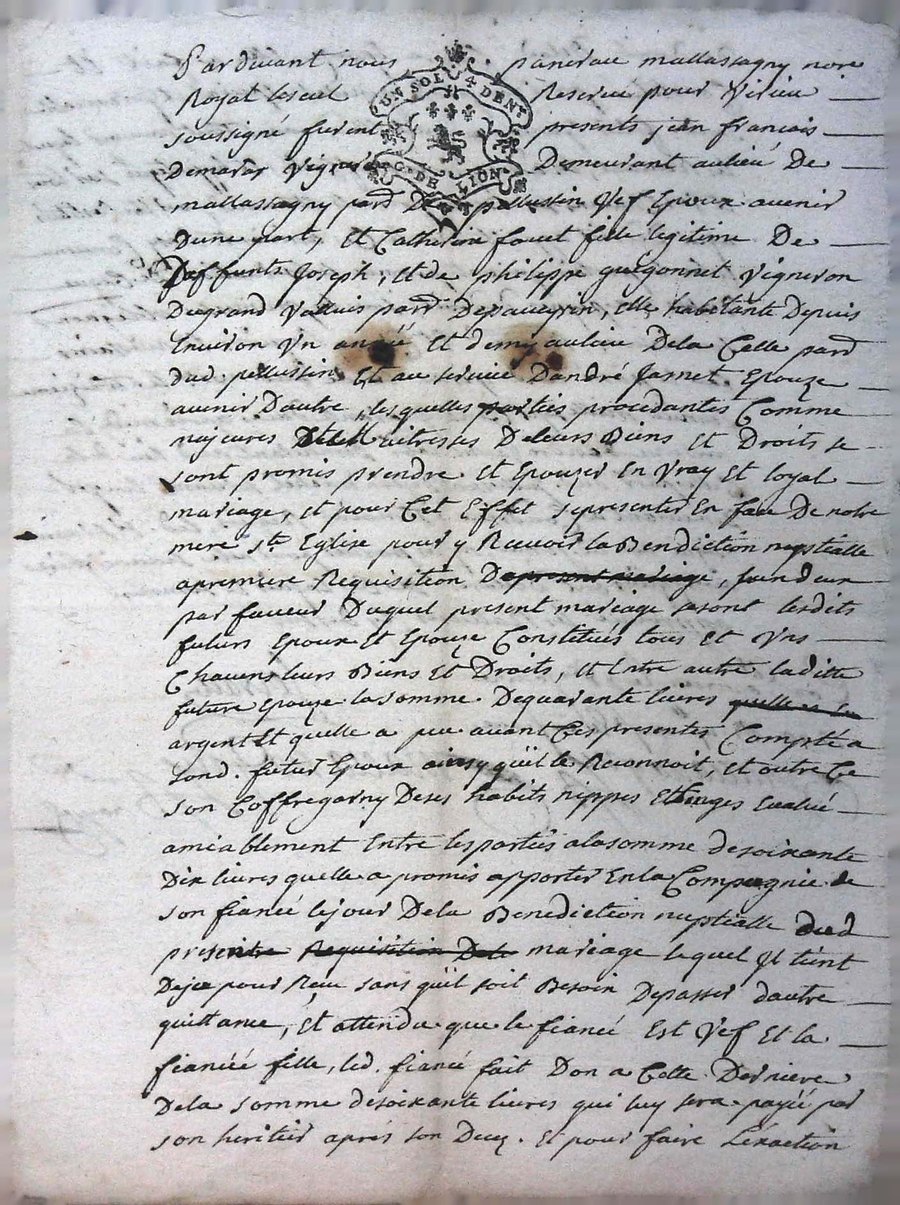 Pardevant nous pancrau mallassagny nore
Royal Reservé pour Virieu
soussigné furent presents jean francois
Demaras vigneron Demeurant aulieu De
mallassagny parr De pellussin Vef Epoux avenir
Dune part, Et Catherine fouet fille legitime De
Deffunts Joseph, et de philippe guigonnet vigneron
Dugrand Valluis parr , Elle habitante Depuis
Environ Vn année Et demy aulieu Dela Celle parr
dud. pellussin Et au service Dandré Jamet Epouze
avenir Dautre, lesquelles parties procedantes Comme
majeures Et Maitresses Deleurs Biens Et Droits se
sont promis prendre Et Epouzer En Vray Et loyal
mariage, et pour Cet Effet sepresenter En face De notre
mere Ste Eglise pour y Recevoir la Benediction nuptialle
apremiere Requisition Depresent mariage, lun deux
par faveur Duquel present mariage se sont lesdits
futurs Epoux Et Epouze Constitués tous Et Vns
Chacuns leurs Biens Et Droits, et Entre autre laditte
future Epouze la somme Dequarante livres quelle a En
argent Et quelle a peu avant Ces presentes Compté a
sond. futur Epoux ainsy quïl le Reconnoit, et outre Ce
son Coffregarny Deses habits nippes Et linges Evalué
amiablement Entre lesparties alasomme desoixante
Dix livres quelle a promis apporter En la Compagnie de
son fiancé lejour Dela Benediction nuptialle dud
presente Requisition Dela mariage lequel Il tient
Deja pour Reçu sans quïl soit Besoin Depasser dautre
quittance, Et attendu que le fiancé Est Vef Et la
fiancée fille, led. fiancé fait Don a Cette Derniere
Dela somme desoixante livres qui luy sera payé par
son heritier après son Decez. Et pour faire Lexaction